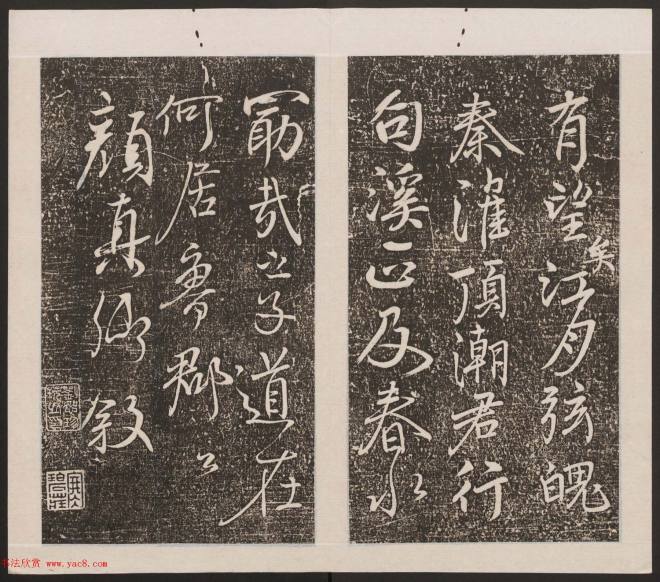 有望矣江月弦魄
秦淮頂潮君行
句溪正及春水
勖哉之子道在
何居魯郡公
顏真卿敘
书法欣赏 www.yac8.com